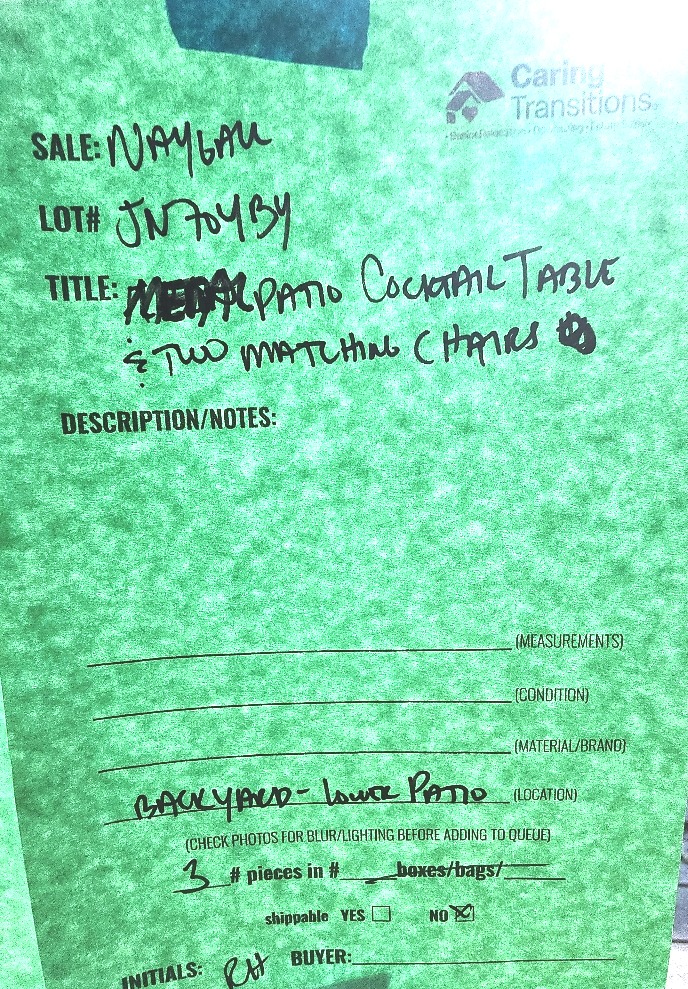 Caring
Transitions
SALE: NAYGALL
LOT# JN704BY
TITLE: PATIO COCKTAIL TABLE
& TWO MATCHING CHAIRS
DESCRIPTION/NOTES:
(MEASUREMENTS)
(CONDITION)
(MATERIAL/BRAND)
BACKYARD - LOWER PATIO (LOCATION)
(CHECK PHOTOS FOR BLUR/LIGHTING BEFORE ADDING TO QUEUE)
3 # pieces in # boxes/bags/
shippable YES NO
INITIALS: RH BUYER: